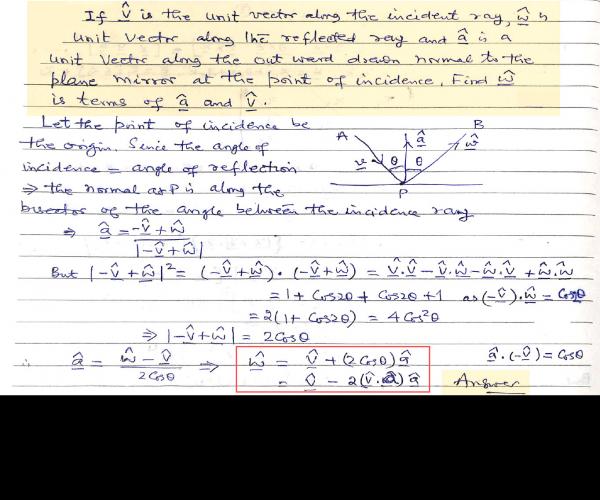 If v̂ is the unit vector along the incident ray, ŵ is
unit vector along the reflected ray and â is a
unit vector along the out ward drawn normal to the
plane mirror at the point of incidence. Find ŵ
is terms of â and v̂.
Let the point of incidence be
the origin. Since the angle of
incidence = angle of reflection
⇒ the normal at P is along the
bisector of the angle between the incidence ray
A B â v θ θ ŵ P
⇒ â = (-v̂ + ŵ) / |-v̂ + ŵ|
But |-v̂ + ŵ|² = (-v̂ + ŵ) . (-v̂ + ŵ) = v̂.v̂ - v̂.ŵ - ŵ.v̂ + ŵ.ŵ
= 1 + Cos2θ + Cos2θ + 1 as (-v̂).ŵ = Cos2θ
= 2(1 + Cos2θ) = 4Cos²θ
⇒ |-v̂ + ŵ| = 2Cosθ
∴ â = (ŵ - v̂) / 2Cosθ ⇒ ŵ = v̂ + (2Cosθ) â â.(-v̂) = Cosθ
= v̂ - 2(v̂.â) â Answer